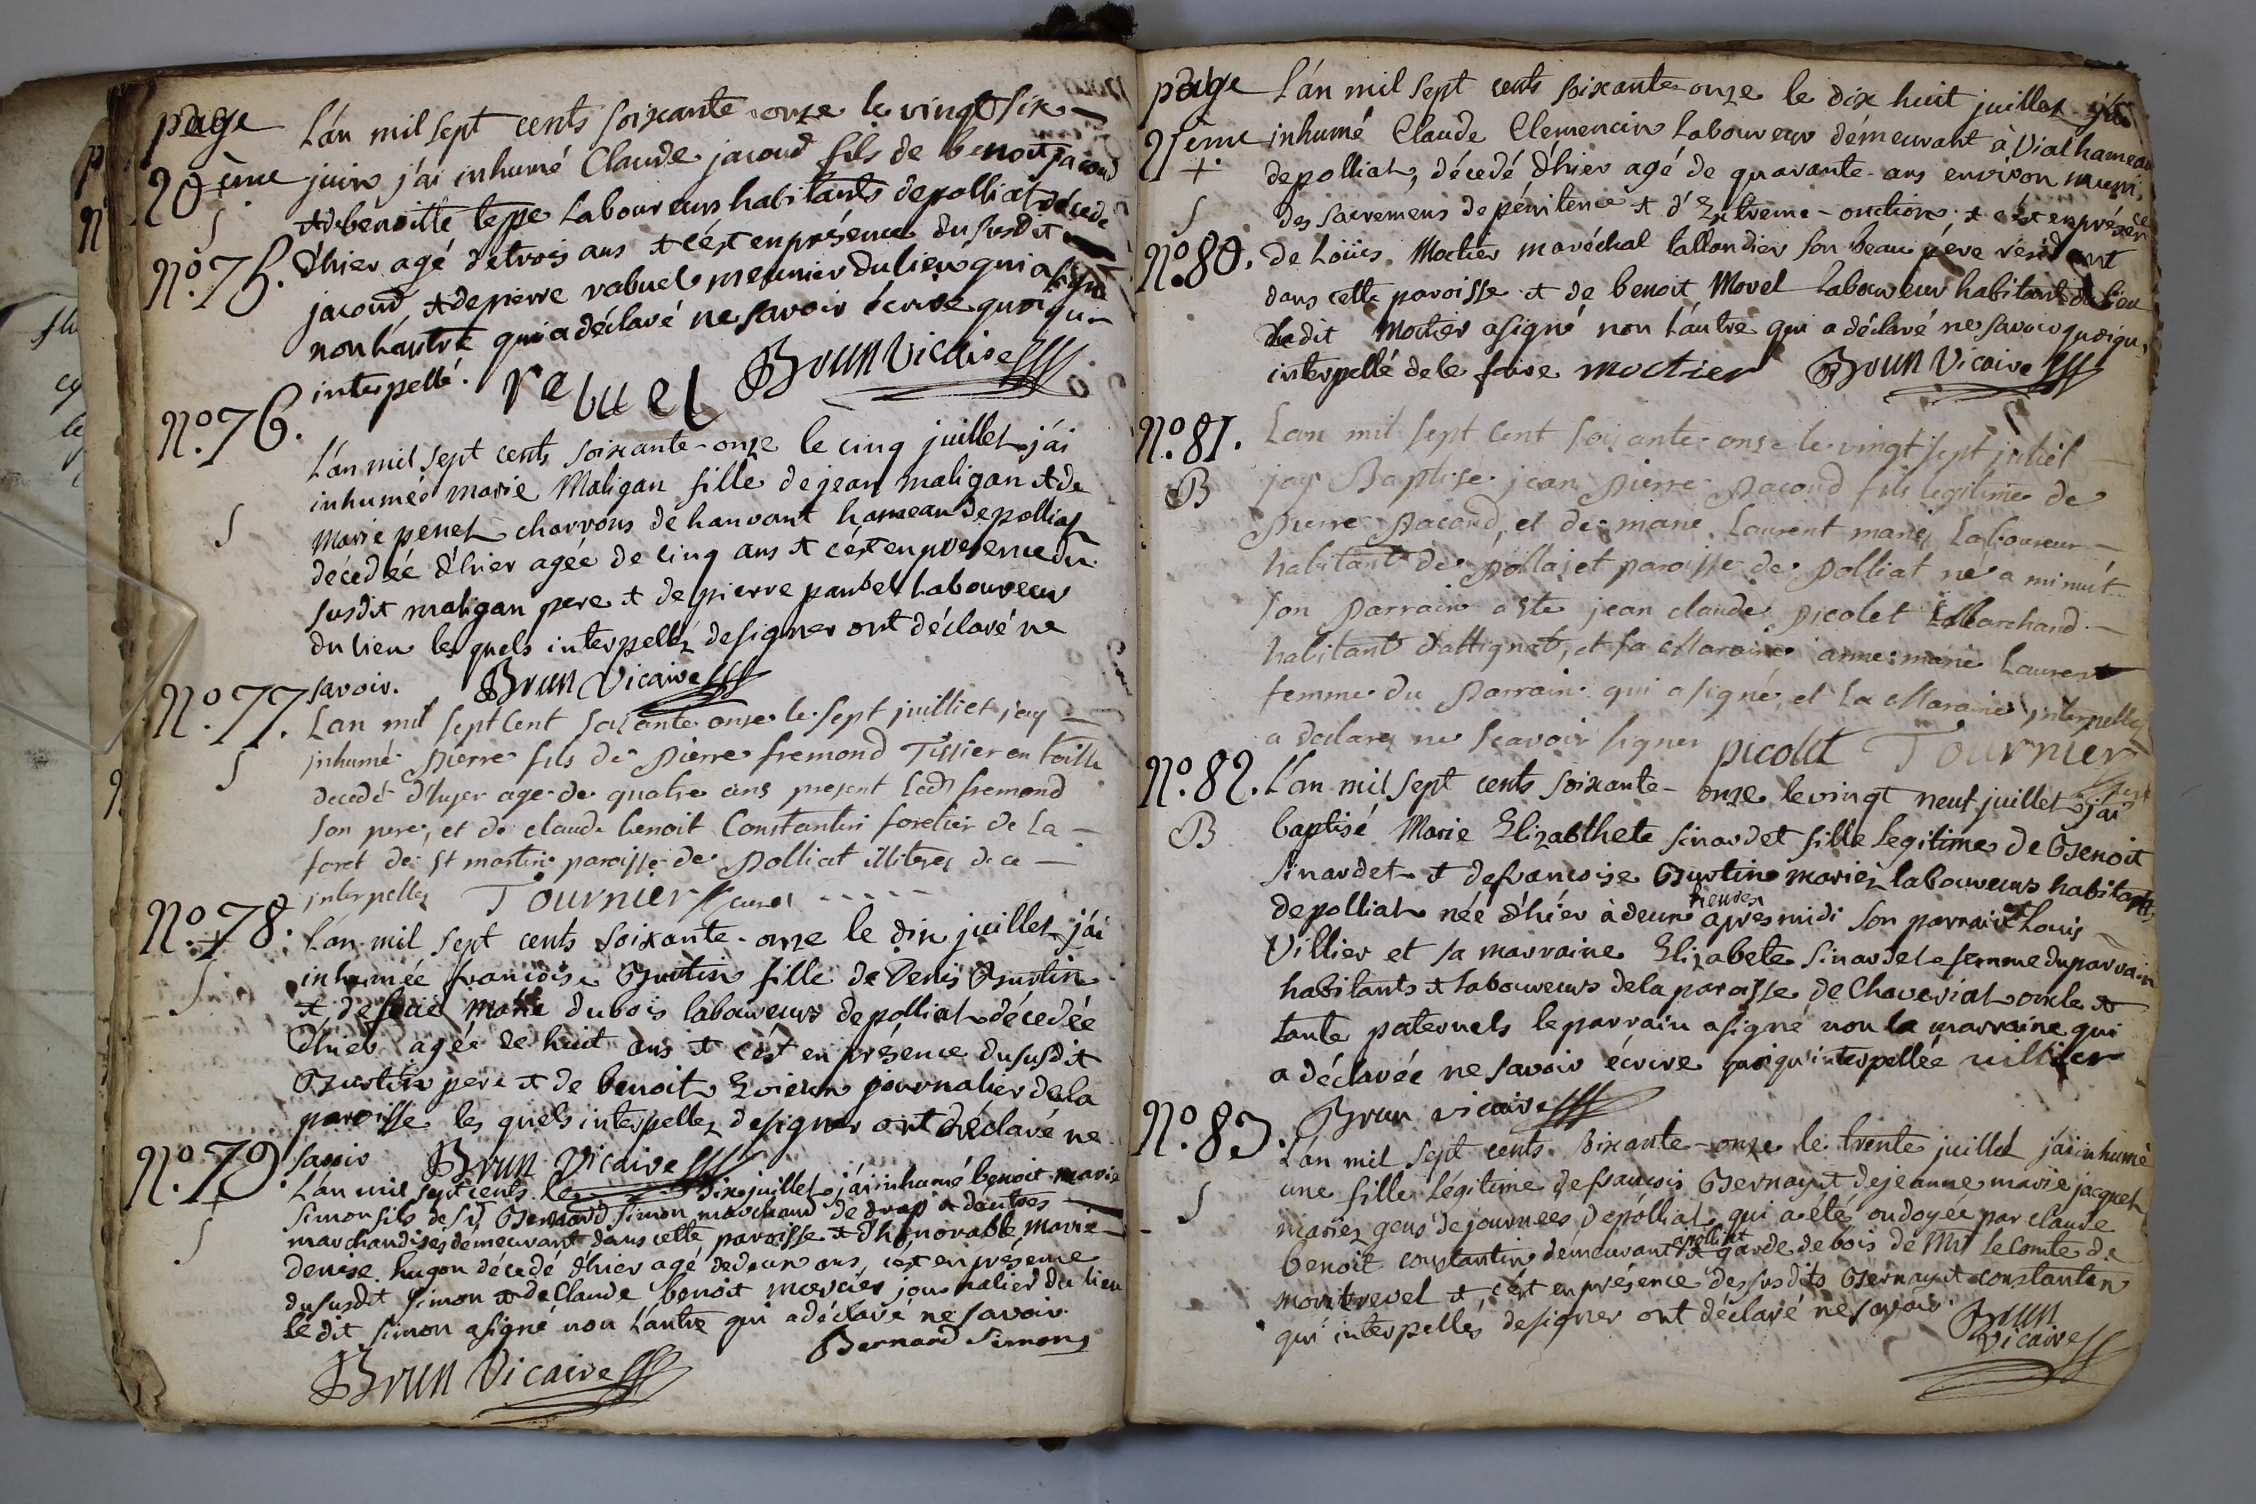 page
20ème
L'an mil sept cents soixante-onze le vingt six
juin j'ai inhumé Claude jacoud fils de benoit jacoud
& de benoitte teppe laboureurs habitants de polliat décédé
d'hier agé de trois ans & c'est en présence du susdit
jacoud, & de pierre rabuel meunier du lieu qui a signé
non l'autre qui a déclaré ne savoir écrire quoiqu'
interpellé. rabuel Brun Vicaire
S
N°. 75.
N°. 76.
S
L'an mil sept cents soixante-onze le cinq juillet j'ai
inhumée marie Maligan fille de jean maligan & de
Marie penet charrons de hauvant hameau de polliat
décédée d'hier agée de cinq ans & c'est en présence du
susdit maligan pere & de pierre paubel laboureur
du lieu les quels interpellez de signer ont déclaré ne
savoir. Brun Vicaire
N°. 77.
S
Lan mil sept Cent soixante onze le sept juilliet jay
inhumé pierre fils de pierre fremond Tissier en toille
decedé d'hyer age de quatre ans present led fremond
son pere, et de claude benoit Constantin foretier de la
foret de st martin paroisse de polliat illiteres de ce
interpelles Tournier curé
N°. 78.
+
S
L'an mil sept cents soixante-onze le dix juillet j'ai
inhumée francoise Gurtin fille de Denis Gurtin
& de feüe Marie dubois laboureurs de polliat décedée
d'hier agée de huit ans & c'est en présence du susdit
Gurtin pere & de benoit journalier de la
paroisse les quels interpellez de signer ont déclaré ne
savoir Brun Vicaire
N°. 79.
+
S
L'an mil sept cents le dix juillet j'ai inhumé benoit marie
simon fils de sr Bernard simon marchand de drap & d'autres
marchandises demeurant dans cette paroisse & d'honorable marie
denise hugon décédé d'hier agé de deux ans, c'est en présence
du susdit simon & de Claude benoit mercier journalier du lieu
le dit simon a signé non l'autre qui a déclaré ne savoir
Bernard Simon
Brun Vicaire
page
21ème
+
S
N°. 80.
L'an mil sept cents soixante-onze le dix huit juillet j'ai
inhumé Claude Clemencin Laboureur démeurant à Vial hameau
de polliat, décedé d'hier agé de quarante-ans environ muni
des sacremens de pénitence & d'Extreme-onction & c'est en présence
de Loüis Moctier maréchal tallandier son beau pere résidant
dans cette paroisse & de benoit Morel laboureur habitant du lieu
ledit Moctier a signé non l'autre qui a déclaré ne savoir quoiqu'
interpellé de le faire moctier Brun Vicaire
N°. 81.
B
Lan mil sept cent soixante onze le vingt sept juliet
jay Baptise jean pierre pacoud fils legitime de
pierre pacoud, et de marie Laurent mariés Laboureur
habitant de pollajet paroisse de polliat né a minuit
son parrain a ete jean claude picolet Marchand
habitant d'attignat, et sa Maraine anne marie Laurent
femme du parrain qui a signé, et la Maraine interpellez
a declarez ne scavoir signer picolet Tournier
curé
N°. 82.
B
L'an mil sept cents soixante-onze le vingt neuf juillet j'ai
baptisé Marie Elizabthete sinardet fille legitime de Benoit
sinardet & de francoise Gurtin mariez laboureurs habitants
de polliat née d'hier à deux heures après midi son parrain est Louis
Villier et sa marraine Elizabete sinardet femme du parrain
habitants & laboureurs de la paroisse de Chaveriat oncle &
tante paternels le parrain a signé non la marraine qui
a déclarée ne savoir écrire quoiqu'interpellée villier
Brun vicaire
N°. 83.
S
L'an mil sept cents soixante-onze le trente juillet j'ai inhumé
une fille légitime de francois Bernay & de jeanne marie jacquet
mariez gens de journées de polliat qui a été ondoyée par claude
benoit constantin démeurant a polliat & garde de bois de Mr le Comte de
montrevel & c'est en présence des susdits Bernay & constantin
qui interpellés de signer ont déclaré ne savoir Brun
vicaire